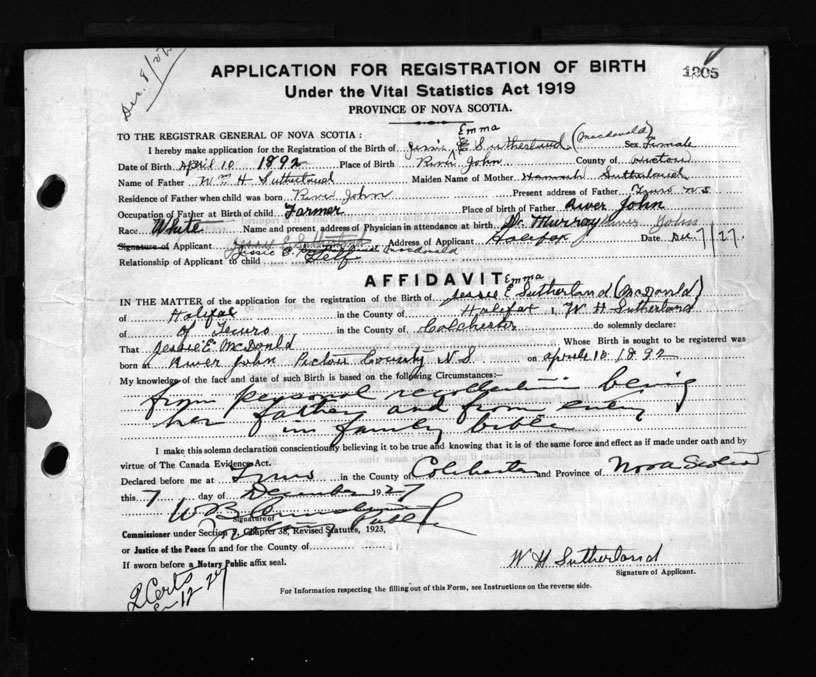 Dec. 9/27
APPLICATION FOR REGISTRATION OF BIRTH
1205
Under the Vital Statistics Act 1919
PROVINCE OF NOVA SCOTIA.
TO THE REGISTRAR GENERAL OF NOVA SCOTIA:
Emma (Macdonald)
I hereby make application for the Registration of the Birth of Jessie E Sutherland Sex Female
Date of Birth April 10 1892 Place of Birth River John County of Pictou
Name of Father Wm H Sutherland Maiden Name of Mother Hannah Sutherland
Residence of Father when child was born River John Present address of Father Truro N S
Occupation of Father at Birth of child Farmer Place of birth of Father River John
Race White Name and present address of Physician in attendance at birth Dr Murray River John
Signature of Applicant Jessie E Sutherland Address of Applicant Halifax Date Dec 7/27.
Jessie E. Macdonald
Relationship of Applicant to child Self
AFFIDAVIT
Emma
IN THE MATTER of the application for the registration of the Birth of Jessie E Sutherland (McDonald)
of Halifax in the County of Halifax I, W H Sutherland
of of Truro in the County of Colchester do solemnly declare:
That Jessie E McDonld Whose Birth is sought to be registered was
born at River John Pictou County N S. on april 10 1892
My knowledge of the fact and date of such Birth is based on the following Circumstances:—
from personal recollection being
her father and from entry
in family bible
I make this solemn declaration conscientiously believing it to be true and knowing that it is of the same force and effect as if made under oath and by
virtue of The Canada Evidence Act.
Declared before me at Truro in the County of Colchester and Province of Nova Scotia
this 7 day of December 1927
W B
Signature of
Notary Public
Commissioner under Section Chapter 38, Revised Statutes, 1923,
or Justice of the Peace in and for the County of
If sworn before a Notary Public affix seal.
W H Sutherland
Signature of Applicant.
2 Certs
12 27
For Information respecting the filling out of this Form, see Instructions on the reverse side.